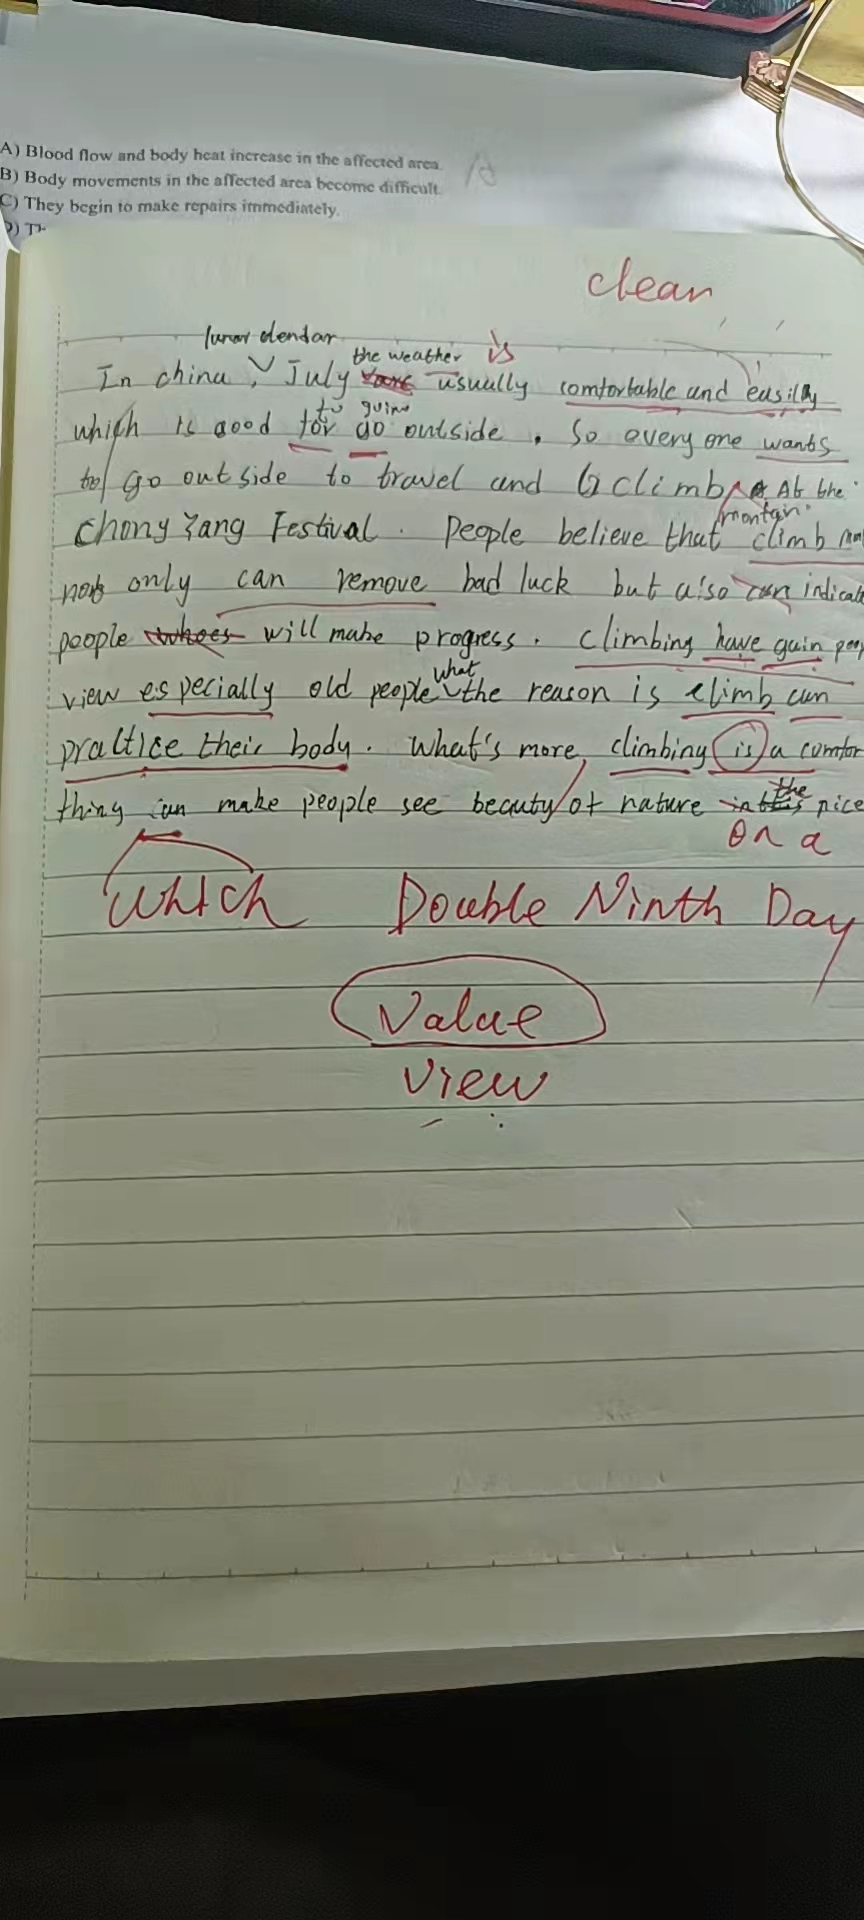 A) Blood flow and body heat increase in the affected area.
B) Body movements in the affected area become difficult.
C) They begin to make repairs immediately.
clean
lunar clendar
the weather is
In china, July usually comfortable and easilly
to going
which is good for go outside. So every one wants
to go outside to travel and climb At the
Chong Yang Festival. People believe that climb
montain
not only can remove bad luck but also can indicate
people will make progress. Climbing have gain
what
view especially old people the reason is climb can
practice their body. What's more, climbing is a comfor
the
thing can make people see beauty of nature in nice
on a
which Double Ninth Day
Value
View